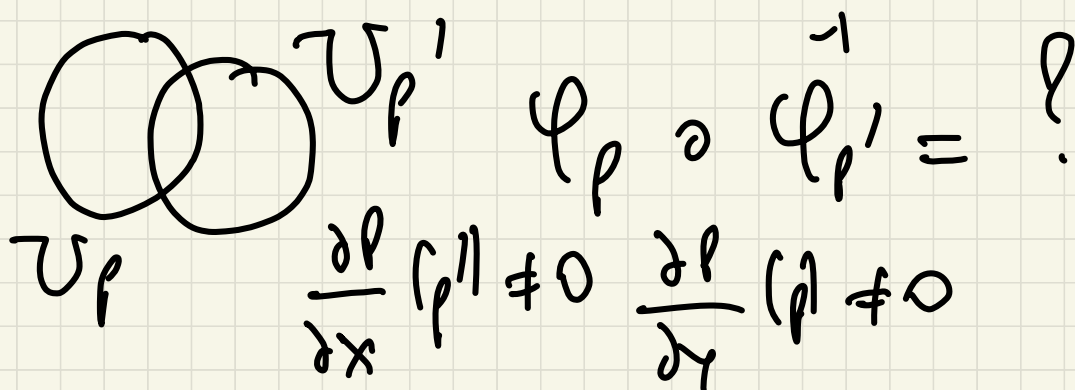 U_p' φ_p ∘ φ_p'^{-1} = ?
U_p ∂P/∂x (p') ≠ 0 ∂P/∂y (p) ≠ 0